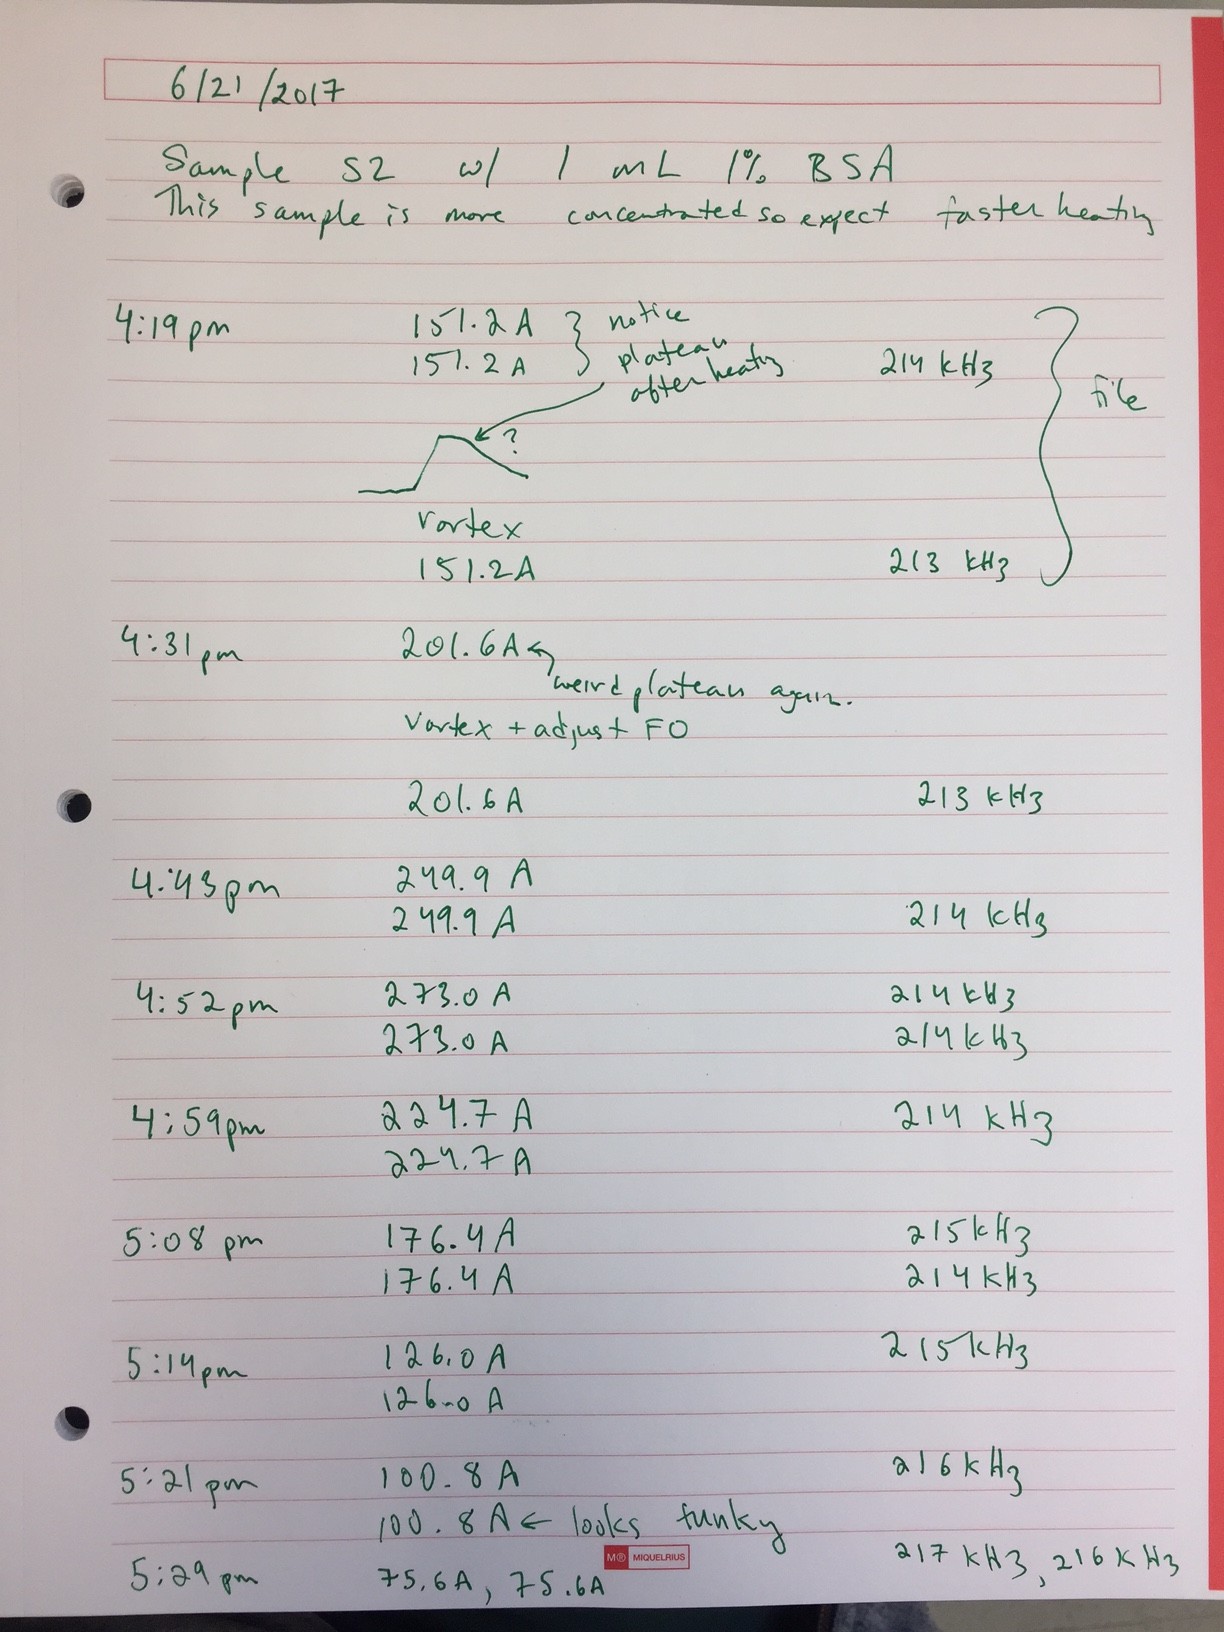 6/21/2017
Sample S2 w/ 1 mL 1% BSA
This sample is more concentrated so expect faster heating
4:19pm 151.2 A notice
151.2 A plateau 214 kHz file
after heating
?
vortex
151.2A 213 kHz
4:31pm 201.6A
weird plateau again.
Vortex + adjust FO
201.6A 213 kHz
4:43pm 249.9 A
249.9 A 214 kHz
4:52pm 273.0 A 214 kHz
273.0 A 214 kHz
4:59pm 224.7 A 214 kHz
224.7 A
5:08 pm 176.4 A 215kHz
176.4 A 214 kHz
5:14pm 126.0 A 215kHz
126.0 A
5:21 pm 100.8 A 216 kHz
100.8A ← looks funky
M® MIQUELRIUS
5:29 pm 75.6A, 75.6A 217 kHz, 216 kHz